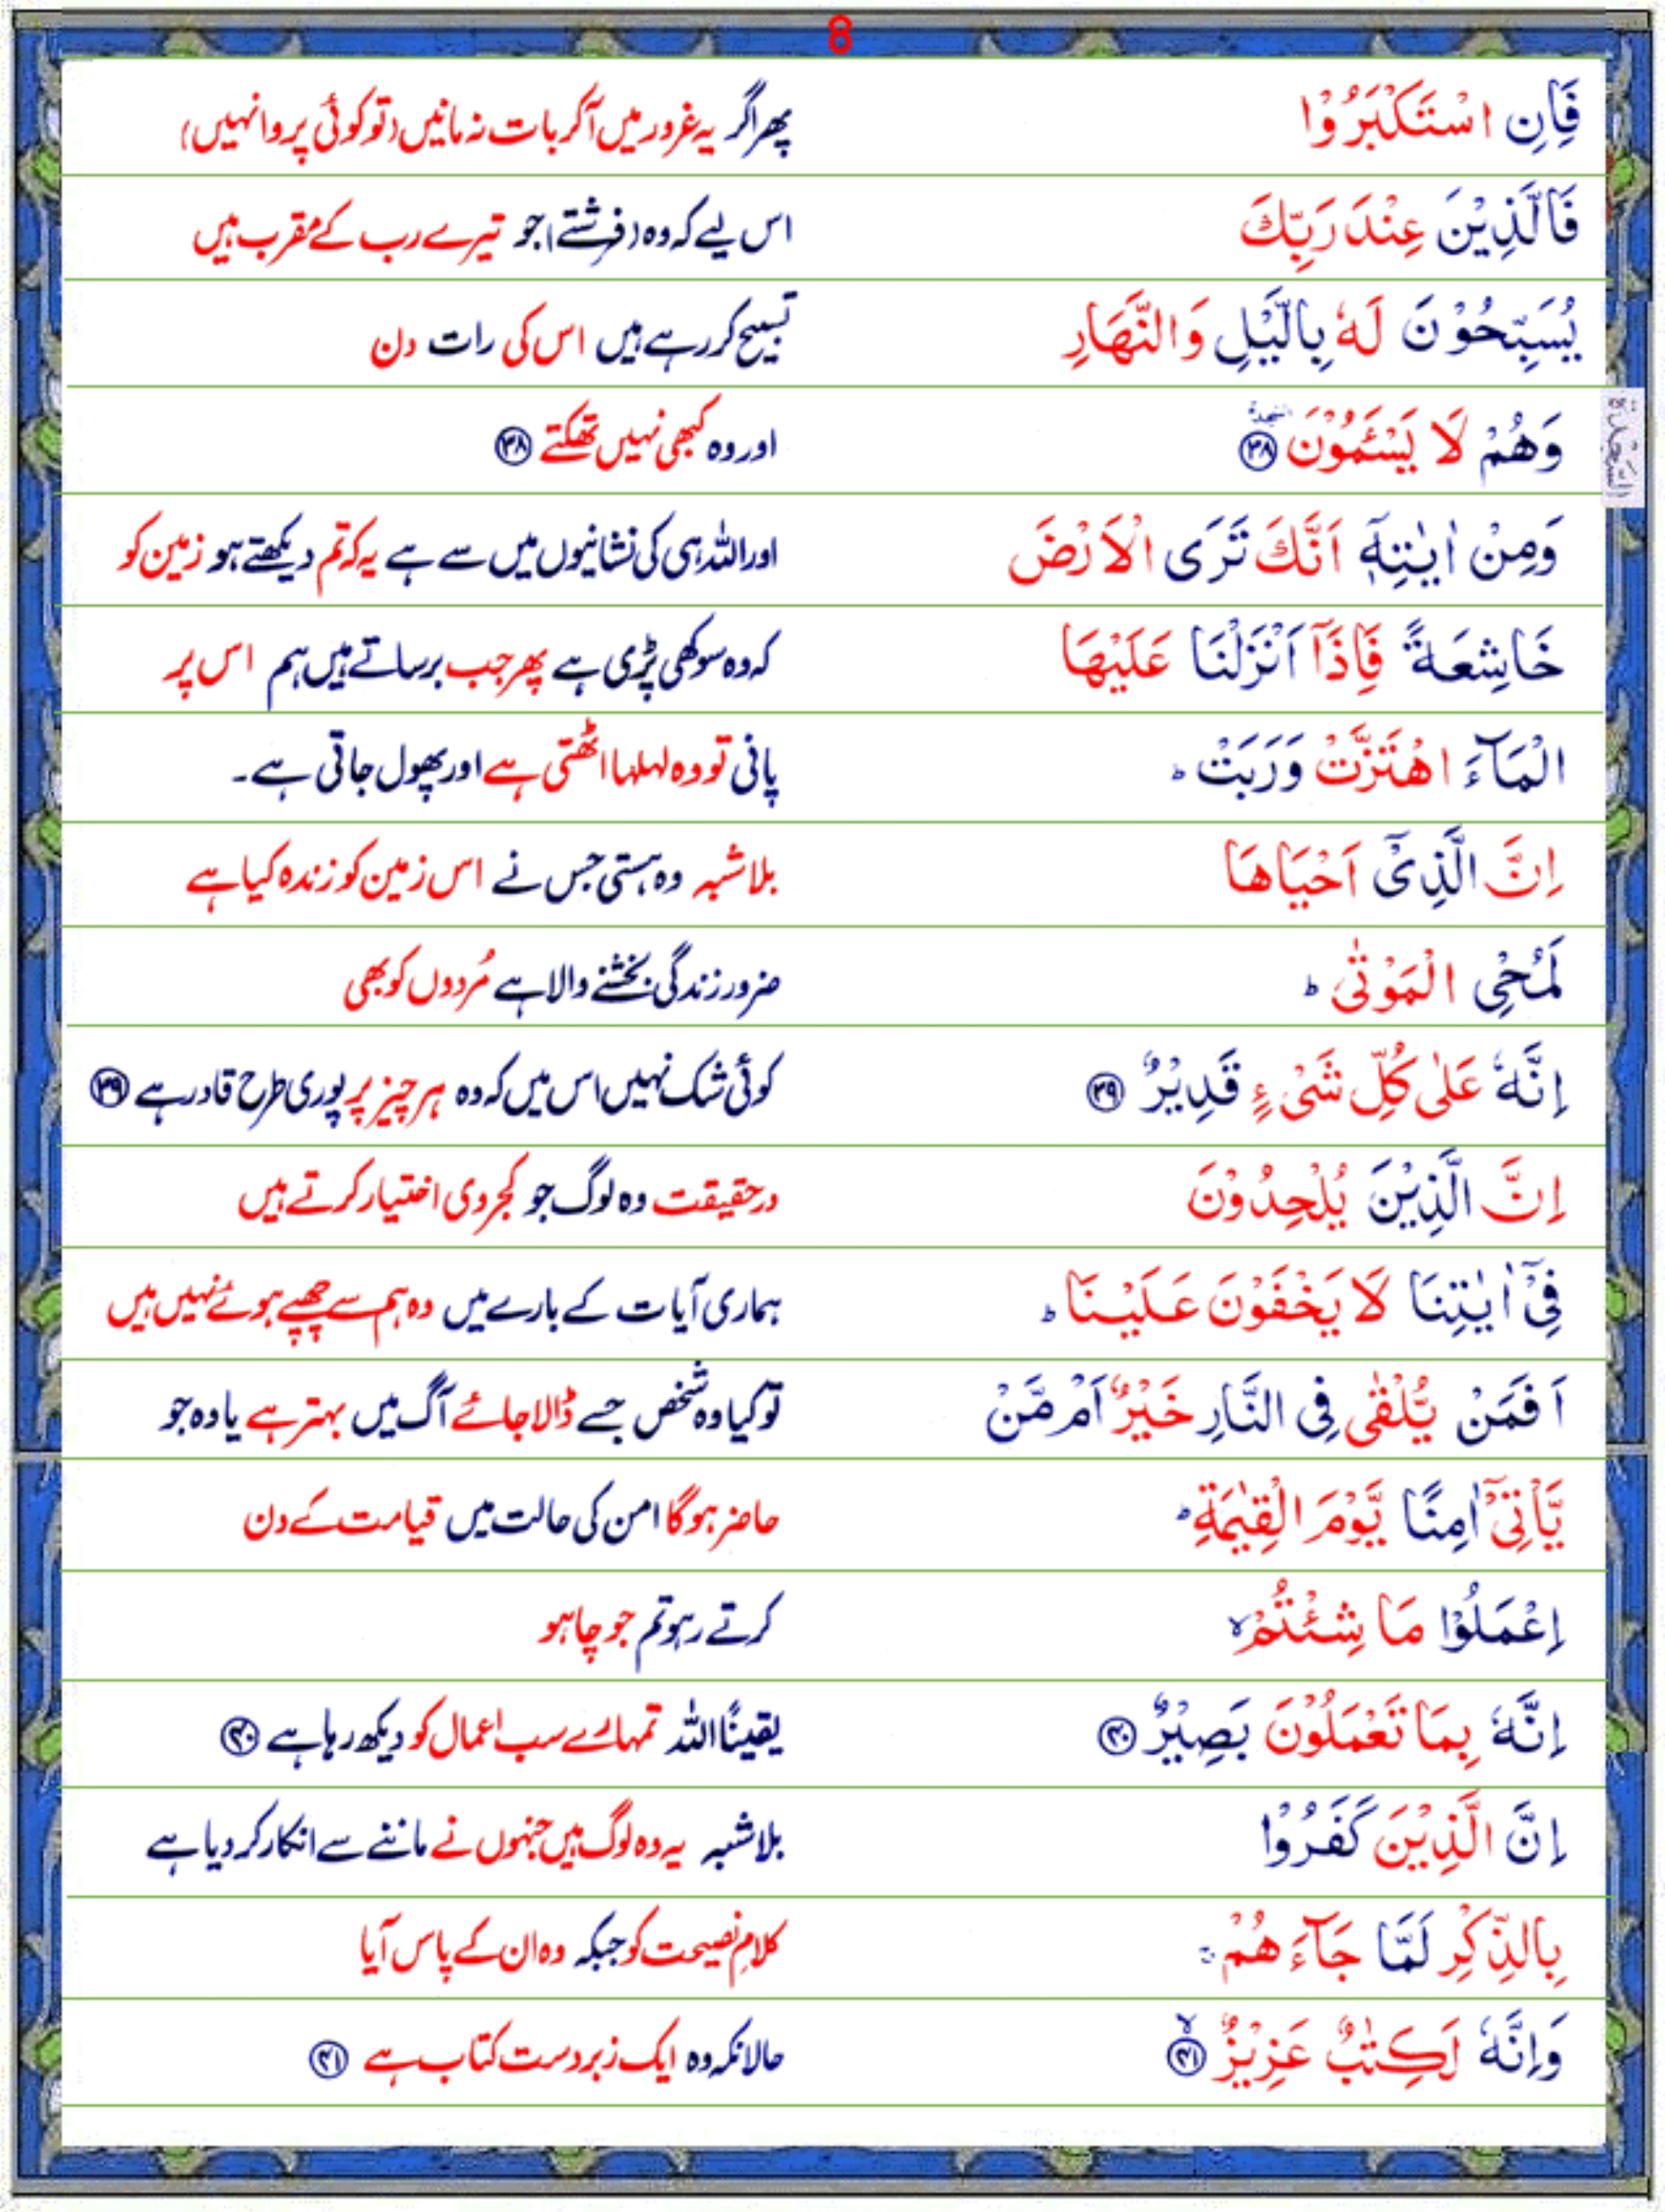 8
فَاِنِ اسْتَكْبَرُوْا پھر اگر یہ غرور میں آکر بات نہ مانیں (تو کوئی پروا نہیں)
فَالَّذِيْنَ عِنْدَ رَبِّكَ اس لیے کہ وہ (فرشتے) جو تیرے رب کے مقرب ہیں
يُسَبِّحُوْنَ لَهٗ بِالَّيْلِ وَالنَّهَارِ تسبیح کر رہے ہیں اس کی رات دن
وَهُمْ لَا يَسْـَٔمُوْنَ ۩ ﴿۳۸﴾ اور وہ کبھی نہیں تھکتے ﴿۳۸﴾
السجدة
وَمِنْ اٰيٰتِهٖٓ اَنَّكَ تَرَى الْاَرْضَ اور اللہ ہی کی نشانیوں میں سے ہے یہ کہ تم دیکھتے ہو زمین کو
خَاشِعَةً فَاِذَآ اَنْزَلْنَا عَلَيْهَا کہ وہ سوکھی پڑی ہے پھر جب برساتے ہیں ہم اس پر
الْمَآءَ اهْتَزَّتْ وَرَبَتْ ؕ پانی تو وہ لہلہا اٹھتی ہے اور پھول جاتی ہے۔
اِنَّ الَّذِيْٓ اَحْيَاهَا بلاشبہ وہ ہستی جس نے اس زمین کو زندہ کیا ہے
لَمُحْيِ الْمَوْتٰى ؕ ضرور زندگی بخشنے والا ہے مُردوں کو بھی
اِنَّهٗ عَلٰى كُلِّ شَيْءٍ قَدِيْرٌ ﴿۳۹﴾ کوئی شک نہیں اس میں کہ وہ ہر چیز پر پوری طرح قادر ہے ﴿۳۹﴾
اِنَّ الَّذِيْنَ يُلْحِدُوْنَ درحقیقت وہ لوگ جو کجروی اختیار کرتے ہیں
فِيْٓ اٰيٰتِنَا لَا يَخْفَوْنَ عَلَيْنَا ؕ ہماری آیات کے بارے میں وہ ہم سے چھپے ہوئے نہیں ہیں
اَفَمَنْ يُّلْقٰى فِي النَّارِ خَيْرٌ اَمْ مَّنْ تو کیا وہ شخص جسے ڈالا جائے آگ میں بہتر ہے یا وہ جو
يَّاْتِيْٓ اٰمِنًا يَّوْمَ الْقِيٰمَةِ ؕ حاضر ہوگا امن کی حالت میں قیامت کے دن
اِعْمَلُوْا مَا شِئْتُمْ ۙ کرتے رہو تم جو چاہو
اِنَّهٗ بِمَا تَعْمَلُوْنَ بَصِيْرٌ ﴿۴۰﴾ یقیناً اللہ تمہارے سب اعمال کو دیکھ رہا ہے ﴿۴۰﴾
اِنَّ الَّذِيْنَ كَفَرُوْا بلاشبہ یہ وہ لوگ ہیں جنہوں نے ماننے سے انکار کر دیا ہے
بِالذِّكْرِ لَمَّا جَآءَهُمْ ۚ کلامِ نصیحت کو جبکہ وہ ان کے پاس آیا
وَاِنَّهٗ لَكِتٰبٌ عَزِيْزٌ ۙ ﴿۴۱﴾ حالانکہ وہ ایک زبردست کتاب ہے ﴿۴۱﴾